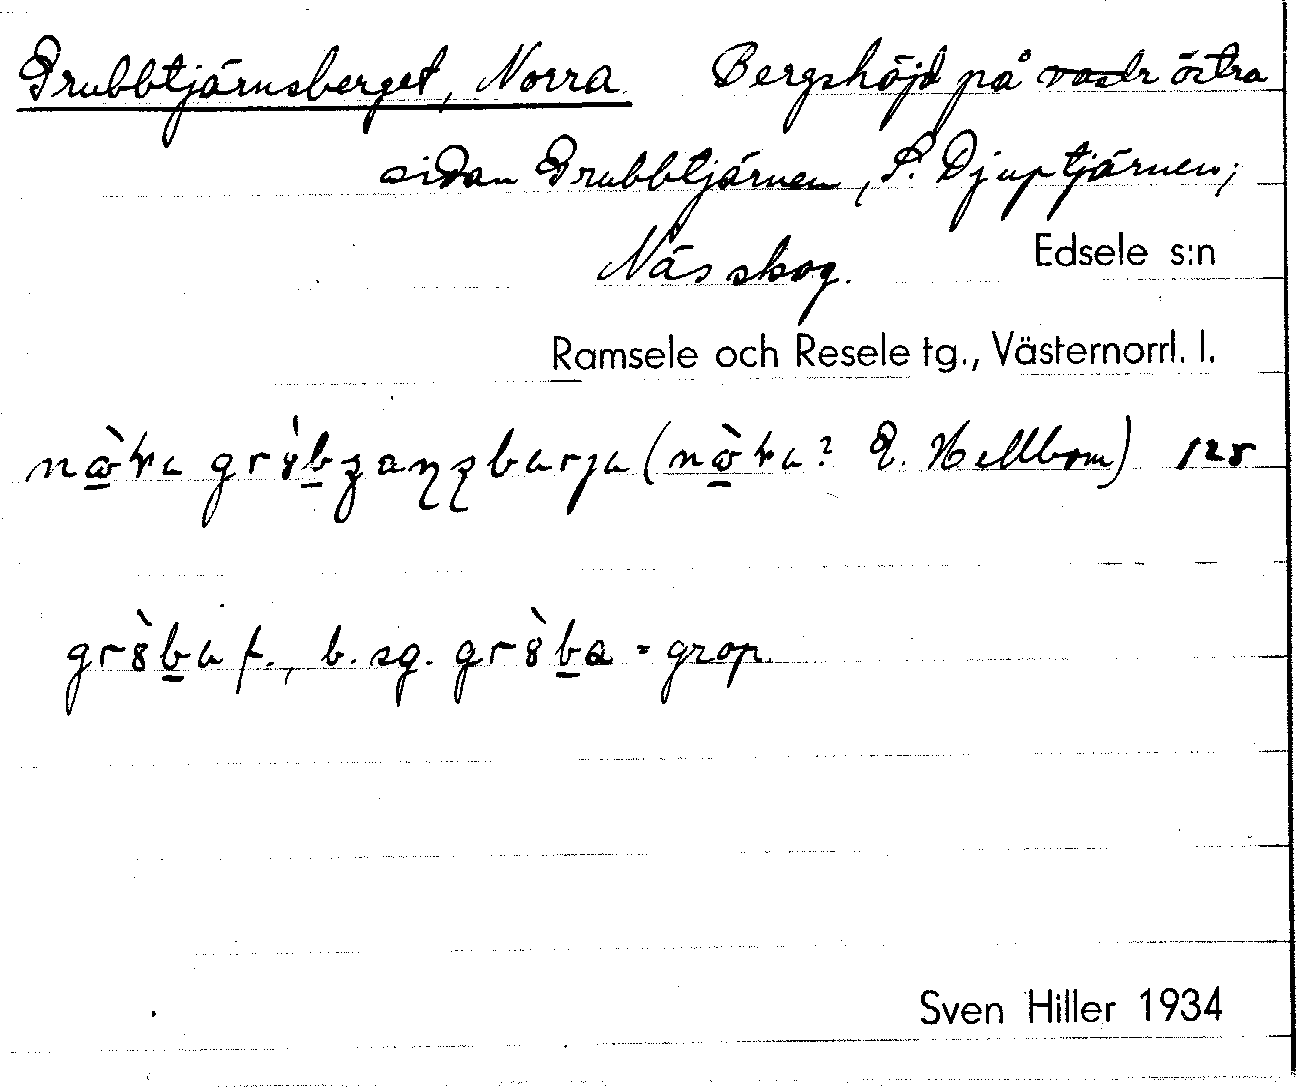 Grubbtjärnsberget, Norra Bergshöjd på vastr östra
sidan Grubbtjärnen, S. Djuptjärnen;
Nässkog. Edsele s:n
Ramsele och Resele tg., Västernorrl. l.
(E. Hellbom)
f., b. sg. = grop.
Sven Hiller 1934